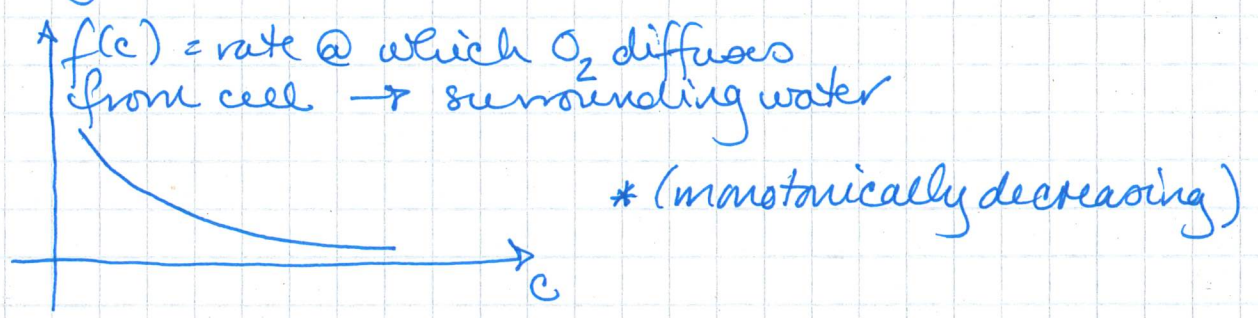 f(c) = rate @ which O₂ diffuses
from cell → surrounding water
* (monotonically decreasing)
c